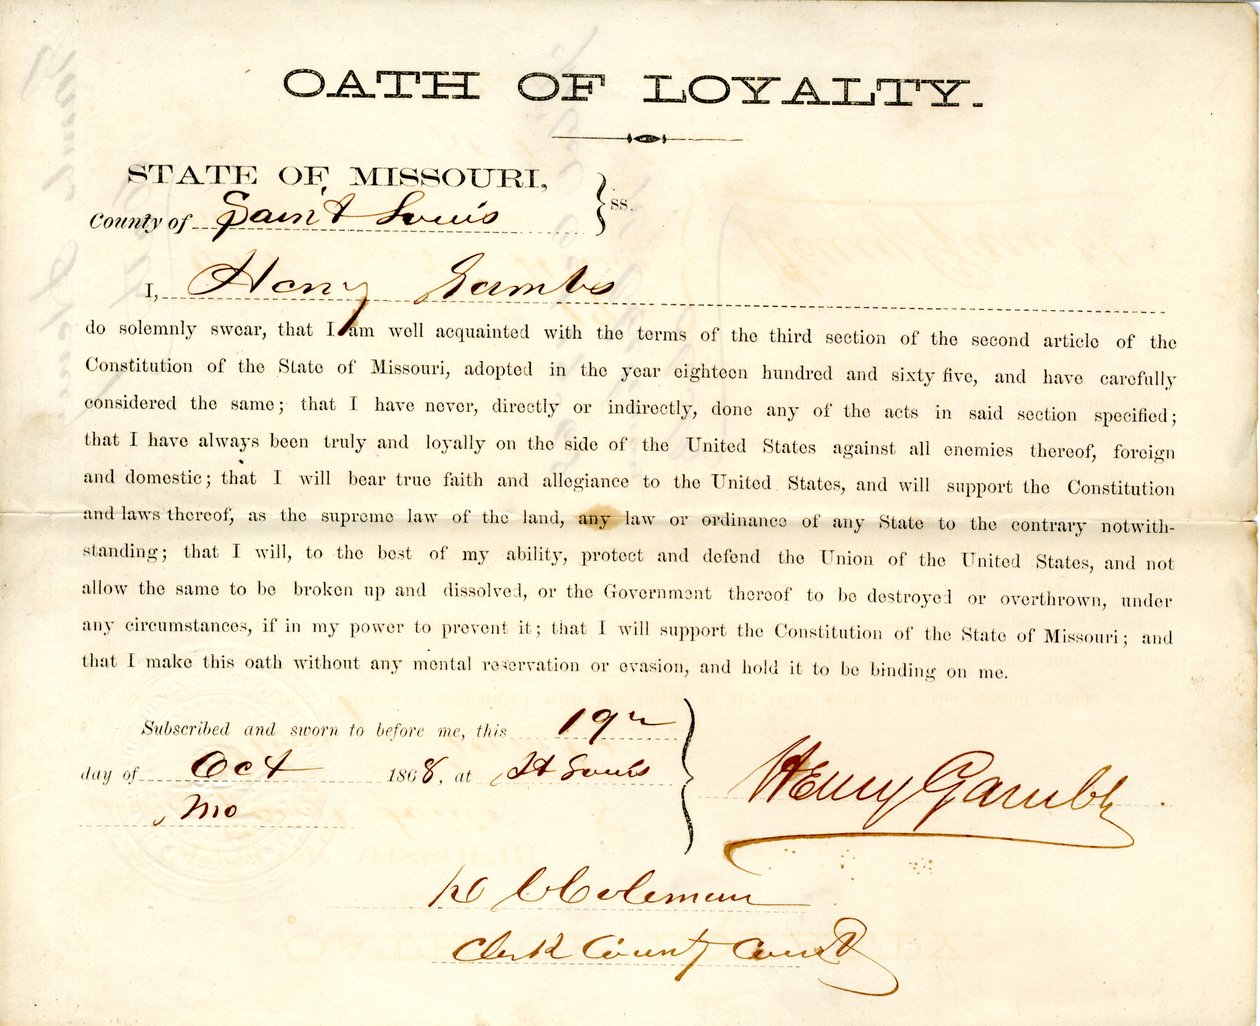 OATH OF LOYALTY.
STATE OF MISSOURI,
County of Saint Louis } ss.
I, Henry Gambs
do solemnly swear, that I am well acquainted with the terms of the third section of the second article of the
Constitution of the State of Missouri, adopted in the year eighteen hundred and sixty five, and have carefully
considered the same; that I have never, directly or indirectly, done any of the acts in said section specified;
that I have always been truly and loyally on the side of the United States against all enemies thereof, foreign
and domestic; that I will bear true faith and allegiance to the United States, and will support the Constitution
and laws thereof, as the supreme law of the land, any law or ordinance of any State to the contrary notwith-
standing; that I will, to the best of my ability, protect and defend the Union of the United States, and not
allow the same to be broken up and dissolved, or the Government thereof to be destroyed or overthrown, under
any circumstances, if in my power to prevent it; that I will support the Constitution of the State of Missouri; and
that I make this oath without any mental reservation or evasion, and hold it to be binding on me.
Subscribed and sworn to before me, this 19th
day of Oct 1868, at St Louis
Mo
Henry Gambs
Coleman
Clerk County Court